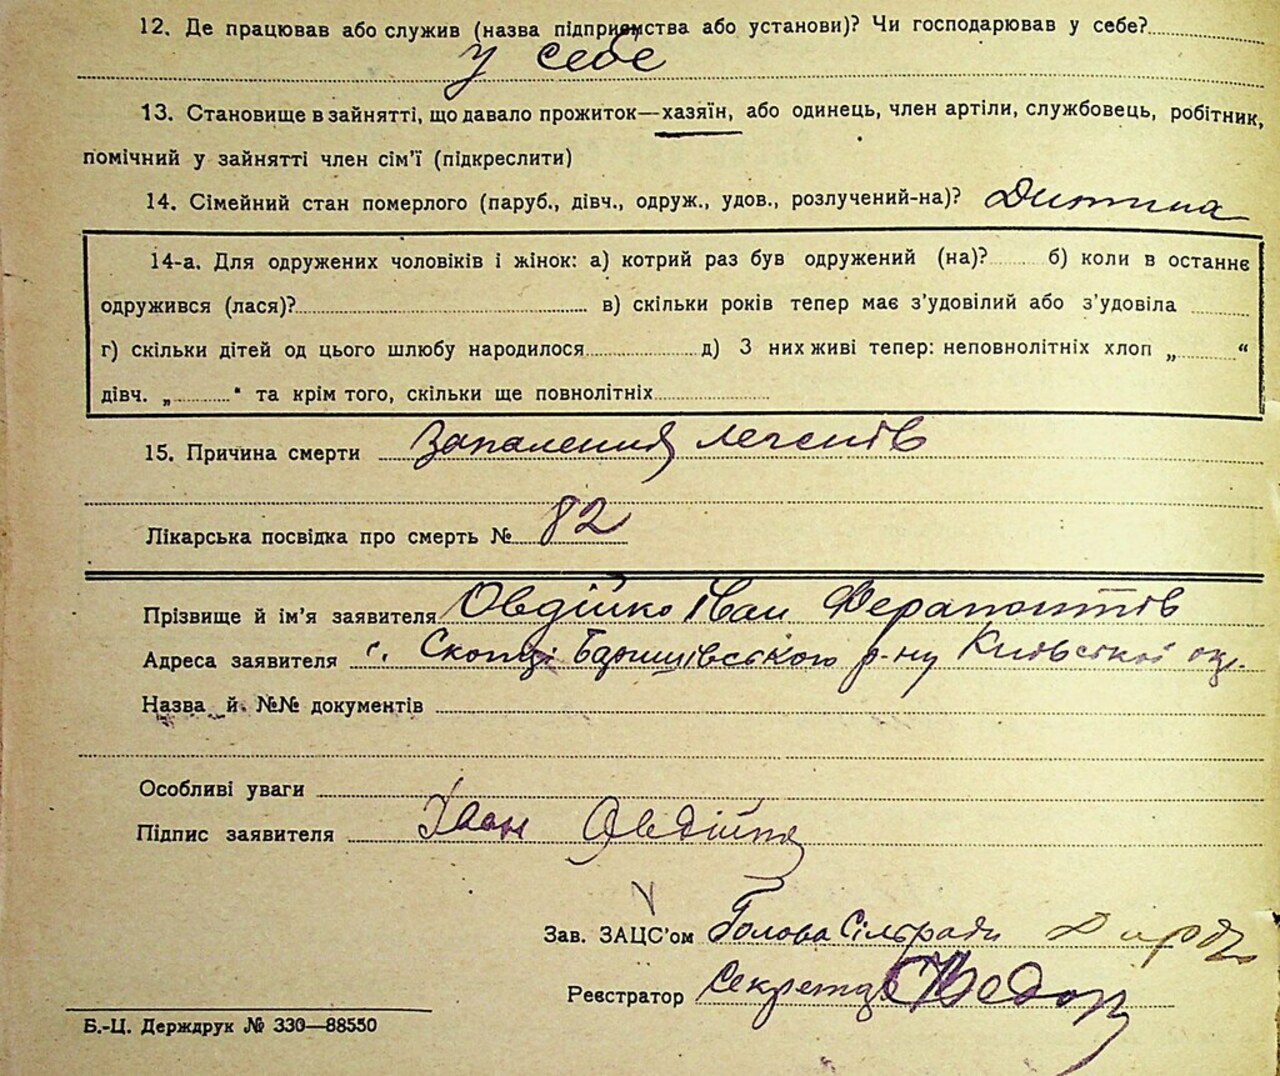 12. Де працював або служив (назва підприємства або установи)? Чи господарював у себе?
у себе
13. Становище в зайнятті, що давало прожиток—хазяїн, або одинець, член артіли, службовець, робітник,
помічний у зайнятті член сім'ї (підкреслити)
14. Сімейний стан померлого (паруб., дівч., одруж., удов., розлучений-на)? Дитина
14-а. Для одружених чоловіків і жінок: а) котрий раз був одружений (на)? б) коли в останнє
одружився (лася)? в) скільки років тепер має з'удовілий або з'удовіла
г) скільки дітей од цього шлюбу народилося д) З них живі тепер: неповнолітніх хлоп „ “
дівч. „ “ та крім того, скільки ще повнолітніх
15. Причина смерти Запалення легенів
Лікарська посвідка про смерть № 82
Прізвище й ім'я заявителя Овдійко Іван Ферапонтів
Адреса заявителя с. Скопці Баришівського р-ну Київської окр.
Назва й №№ документів
Особливі уваги
Підпис заявителя Іван Овдійко
Зав. ЗАЦС'ом Голова Сільради
Реєстратор Секретар
Б.-Ц. Держдрук № 330—88550